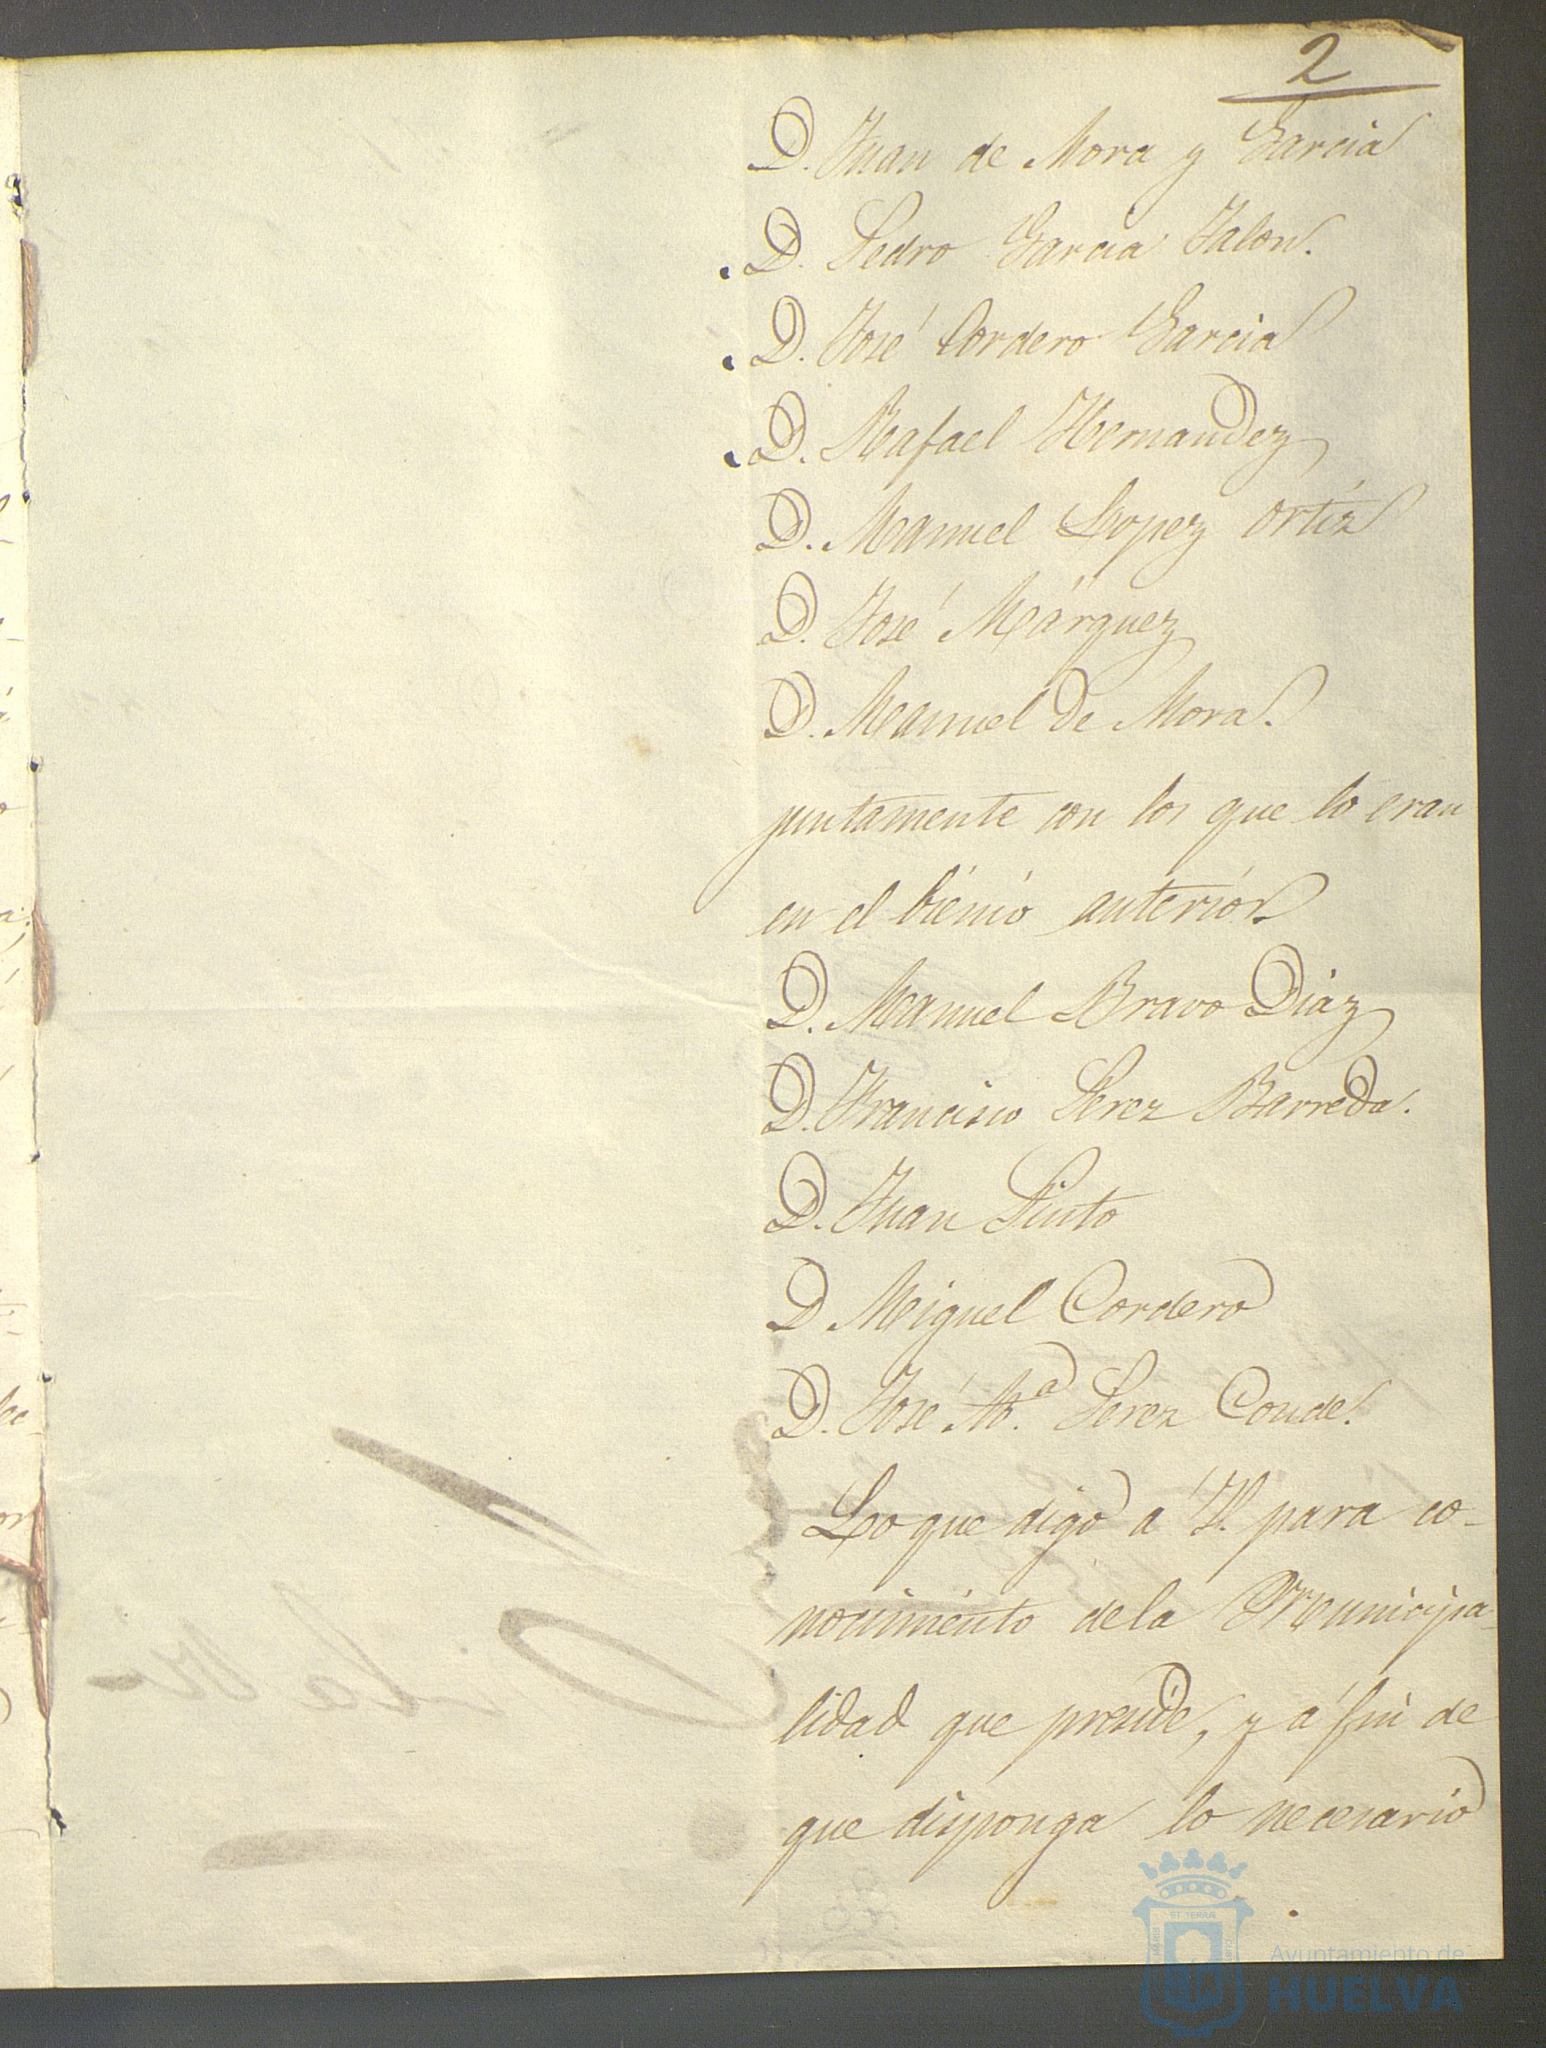 2
D. Juan de Mora y Garcia
D. Pedro Garcia Jalon.
D. José Cordero Garcia
D. Rafael Hernandez
D. Manuel Lopez Ortiz
D. José Márquez
D. Manuel de Mora.
juntamente con los que lo eran
en el bienio anterior
D. Manuel Bravo Diaz
D. Francisco Perez Barreda.
D. Juan Pinto
D Miguel Cordero
D. José M.ª Perez Conde.
Lo que digo a V. para co-
nocimiento de la Municipa-
lidad que preside, y a fin de
que disponga lo necesario
Ayuntamiento de
HUELVA